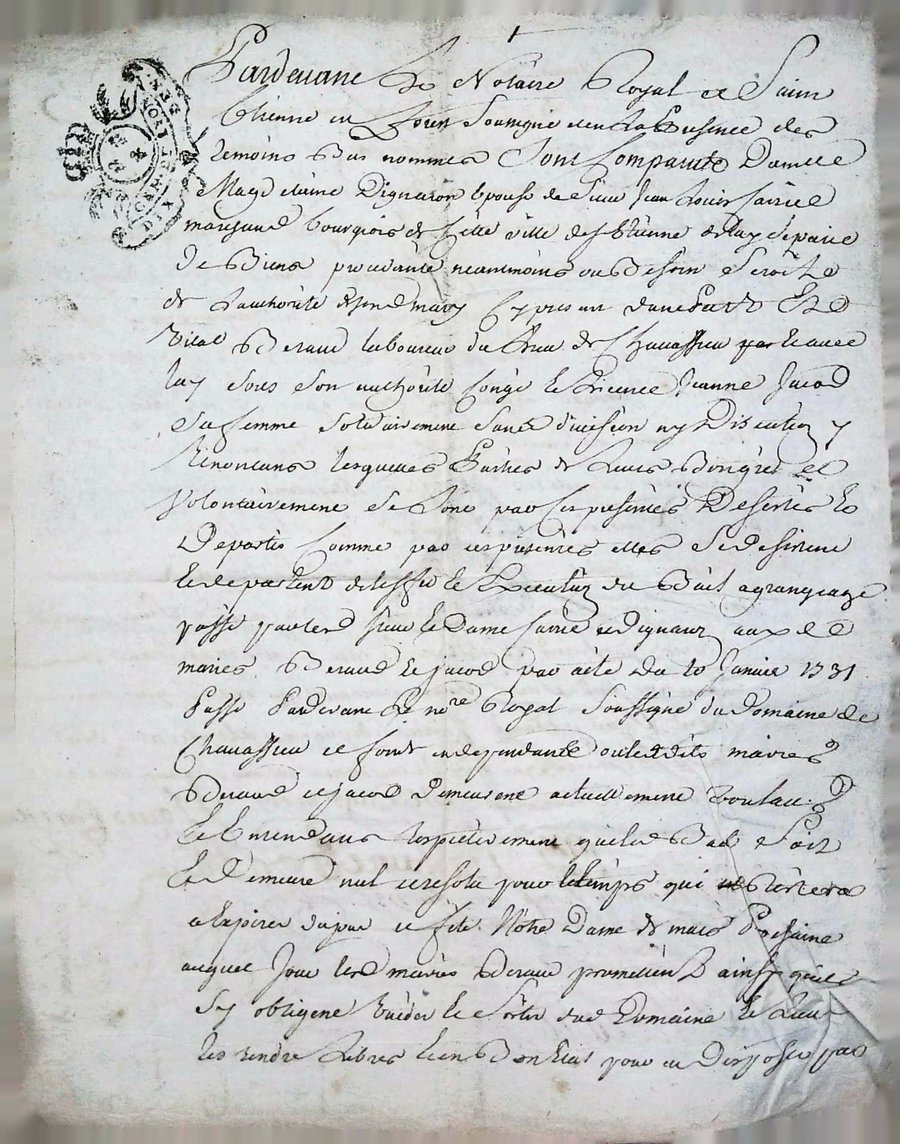 Pardevant Le Notaire Royal de Saint
Etienne en forest Soussigné et en la presence des
temoins Bas nommes Sont Comparüe Damelle
Magdelaine Dignaron Epouse de Sieur Jean Louis
marchand bourgeois de cette ville de st Etienne de luy separée
de Biens procedante neantmoins au Besoin Et
de l'authorité dud mary cy present d'une part Et
Vital Beraud laboureur du lieu de Chavassieu et avec
luy sous son authorité Congé et licence Jeanne Jacod
sa femme solidairement sans division ny Discution y
Renonceans lesquelles Parties de leurs Bongrés et
Volontairement se sont par ces presentes Desistés Et
Departis Comme par ces presentes elles se desistent
et departent de l'effet et Execution du Bail a grangeage
passé par led sieur et Dame et dignaron aux d
mariés Beraud et jacod par acte du 10 Janvier 1731
Passé Pardevant le nore Royal Soussigné du Domaine de
Chavassieu et fonds en dependants ou lesdits mariés
Beraud et jacod demeurent actuellement
Et Entendant respectivement que led Bail soit
Et demeure nul et resolu pour le temps qui resterera
a Expirer dapres la fête Notre Dame de mars Prochaine
auquel Jour led mariés Beraud promettent ainsy quils
sy obligent vuider et sortir dud Domaine et
les rendre Libres et en Bon Etat pour en Disposer par